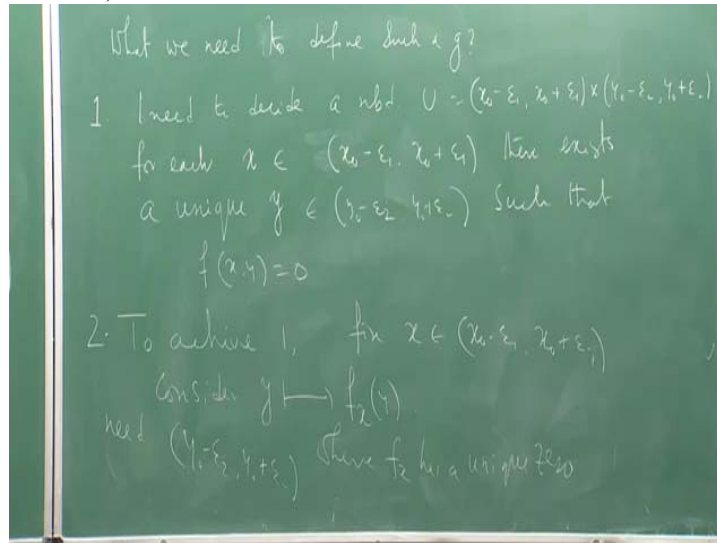 What we need to define such a g?
1. I need to decide a nbd. U = (x₀-ε₁, x₀+ε₁)×(y₀-ε₂, y₀+ε₂)
for each x ∈ (x₀-ε₁, x₀+ε₁) there exists
a unique y ∈ (y₀-ε₂, y₀+ε₂) such that
f(x,y)=0
2. To achive 1, fix x ∈ (x₀-ε₁, x₀+ε₁)
Consider y ⟼ fₓ(y)
need (y₀-ε₂, y₀+ε₂) where fₓ has a unique zero